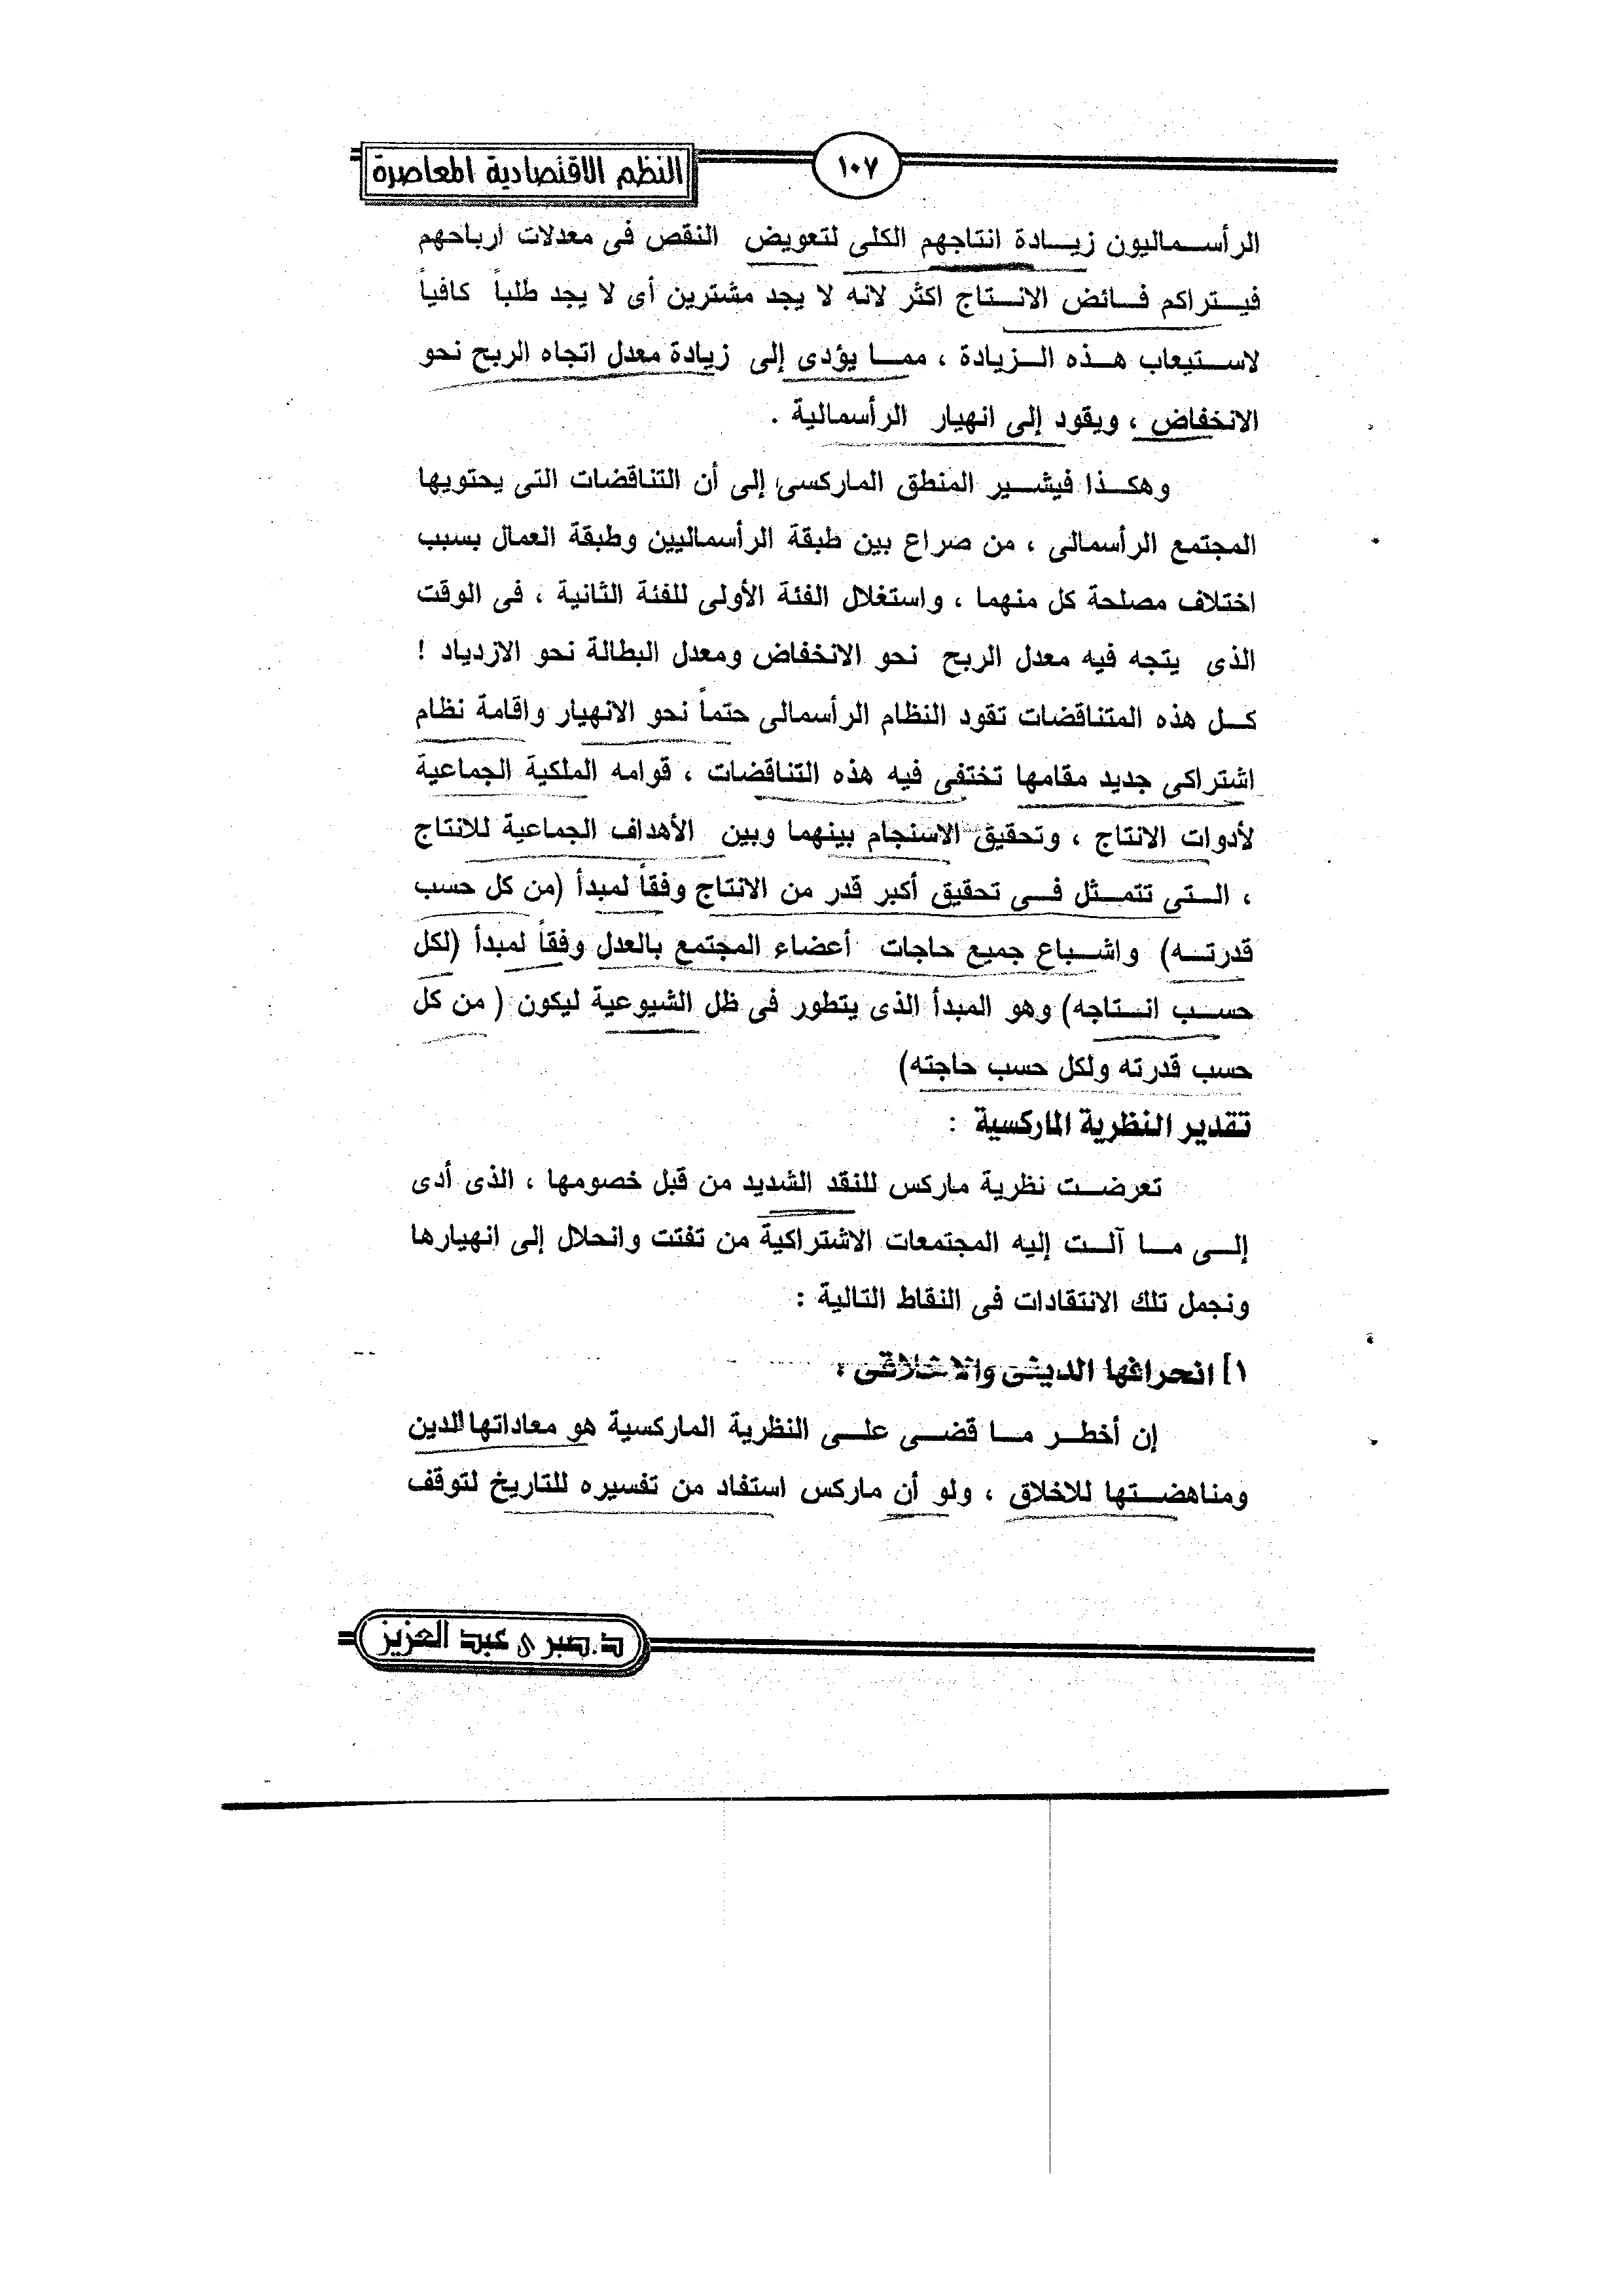 النظم الاقتصادية المعاصرة
١٠٧
الرأسماليون زيادة انتاجهم الكلى لتعويض النقص فى معدلات ارباحهم
فيتراكم فائض الانتاج اكثر لانه لا يجد مشترين أى لا يجد طلباً كافياً
لاستيعاب هذه الزيادة ، مما يؤدى إلى زيادة معدل اتجاه الربح نحو
الانخفاض ، ويقود إلى انهيار الرأسمالية .
وهكذا فيشير المنطق الماركسى إلى أن التناقضات التى يحتويها
المجتمع الرأسمالى ، من صراع بين طبقة الرأسماليين وطبقة العمال بسبب
اختلاف مصلحة كل منهما ، واستغلال الفئة الأولى للفئة الثانية ، فى الوقت
الذى يتجه فيه معدل الربح نحو الانخفاض ومعدل البطالة نحو الازدياد !
كل هذه المتناقضات تقود النظام الرأسمالى حتماً نحو الانهيار واقامة نظام
اشتراكى جديد مقامها تختفى فيه هذه التناقضات ، قوامه الملكية الجماعية
لأدوات الانتاج ، وتحقيق الاسنجام بينهما وبين الأهداف الجماعية للانتاج
، التى تتمثل فى تحقيق أكبر قدر من الانتاج وفقاً لمبدأ (من كل حسب
قدرته) واشباع جميع حاجات أعضاء المجتمع بالعدل وفقاً لمبدأ (لكل
حسب انتاجه) وهو المبدأ الذى يتطور فى ظل الشيوعية ليكون ( من كل
حسب قدرته ولكل حسب حاجته)
تقدير النظرية الماركسية :
تعرضت نظرية ماركس للنقد الشديد من قبل خصومها ، الذى أدى
إلى ما آلت إليه المجتمعات الاشتراكية من تفتت وانحلال إلى انهيارها
ونجمل تلك الانتقادات فى النقاط التالية :
١] انحرافها الدينى والاخلاقى :
إن أخطر ما قضى على النظرية الماركسية هو معاداتها الدين
ومناهضتها للاخلاق ، ولو أن ماركس استفاد من تفسيره للتاريخ لتوقف
د.صبرى عبد العزيز